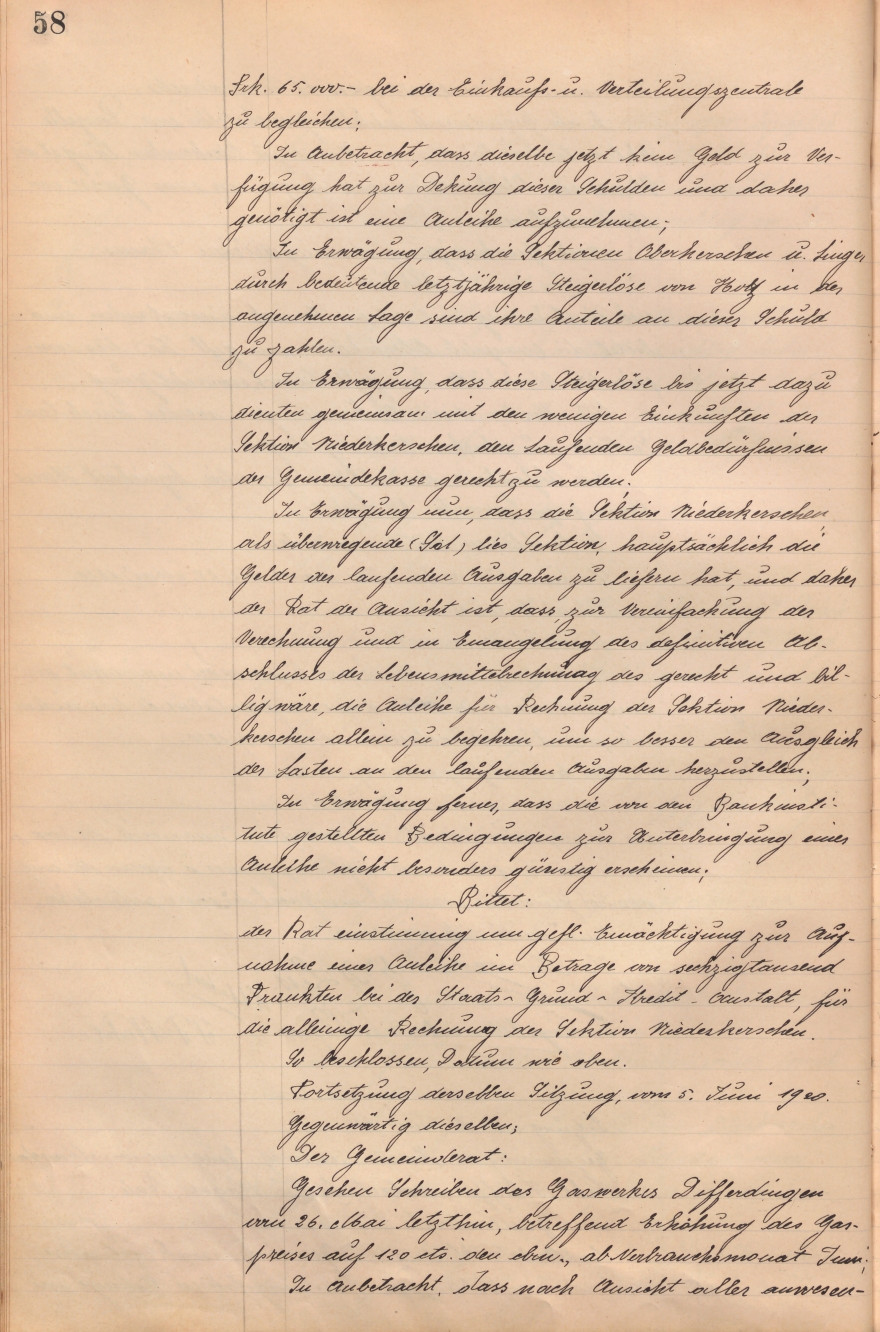 58
Frk. 65.000.- bei der Einkaufs- u. Verteilungszentrale
zu begleichen;
In Anbetracht, dass dieselbe jetzt kein Geld zur Ver-
fügung hat zur Dekung dieser Schulden und daher
genötigt ist eine Anleihe aufzunehmen;
In Erwägung, dass die Sektionen Oberkerschen u. Linger
durch bedeutende letztjährige Steigerlöse von Holz in der
angenehmen Lage sind ihre Anteile an dieser Schuld
zu zahlen.
In Erwägung, dass diese Steigerlöse bis jetzt dazu
dienten gemeinsam mit den wenigen Einkünften der
Sektion Niederkerschen, den laufenden Geldbedürfnissen
der Gemeindekasse gerecht zu werden;
In Erwägung nun, dass die Sektion Niederkerschen,
als überwiegende (Sol) lies Sektion, hauptsächlich die
Gelder der laufenden Ausgaben zu liefern hat, und daher
der Rat der Ansicht ist, dass, zur Vereinfachung der
Verechnung und in Emangelung des definitiven Ab-
schlusses der Lebensmittelrechnung des gerecht und bil-
lig wäre, die Anleihe für Rechnung der Sektion Nieder-
kerschen allein zu begehren, um so besser den Ausgleich
der Lasten an den laufenden Ausgaben herzustellen;
In Erwägung ferner, dass die von den Bankinsti-
tute gestellten Bedingungen zur Unterbringung einer
Anleihe nicht besonders günstig erscheinen;
Bittet:
der Rat einstimmig um gefl. Emächtigung zur Auf-
nahme einer Anleihe im Betrage von sechzigtausend
Frankten bei der Staats- Grund- Kredit- Anstalt, für
die alleinige Rechnung der Sektion Niederkerschen.
So beschlossen, Datum wie oben.
Fortsetzung derselben Sitzung, vom 5. Juni 1920.
Gegenwärtig dieselben;
Der Gemeinderat:
Gesehen Schreiben des Gaswerkes Differdingen
vom 26. Mai letzthin, betreffend Erhöhung des Gas-
preises auf 120 cts. den cbm., ab Verbrauchsmonat Juni;
In Anbetracht, dass nach Ansicht aller anwesen-